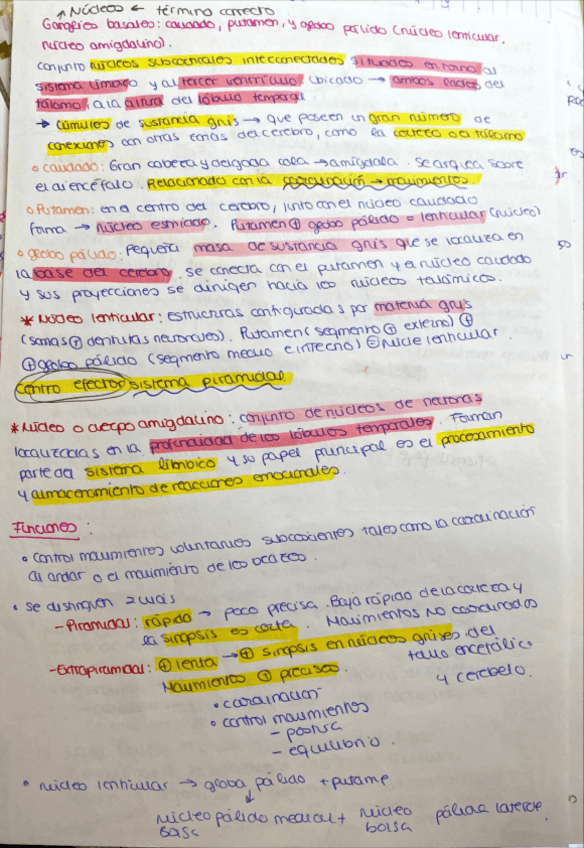 ↗ Núcleos ← término correcto
Ganglios basales: caudado, putamen, y globo pálido (núcleo lenticular,
núcleo amigdalino).
conjunto núcleos subcorticales interconectados situados entorno al
sistema límbico y al tercer ventrículo. Ubicado → ambos lados del
tálamo, a la altura del lóbulo temporal
→ Cúmulos de sustancia gris → que poseen un gran número de
conexiones con otras zonas del cerebro, como la corteza o el tálamo.
○ caudado: Gran cabeza y delgada cola → amígdala. Se arquea sobre
el diencéfalo. Relacionado con la coordinación → movimientos.
○ Putamen: en el centro del cerebro, junto con el núcleo caudado
forma → núcleo estriado. Putamen ⊕ globo pálido = lenticular (núcleo)
○ globo pálido: Pequeña masa de sustancia gris que se localiza en
la base del cerebro. Se conecta con el putamen y el núcleo caudado
y sus proyecciones se dirigen hacia los núcleos talámicos.
* Núcleo lenticular: estructuras configuradas por materia gris
(somas ⊕ dendritas neuronales). Putamen (segmento ⊕ externo) ⊕
⊕ globo pálido (segmento medio e interno) ⊖ Nucle lenticular.
centro efector sistema piramidal
* Núcleo o cuerpo amigdalino: conjunto de núcleos de neuronas
localizadas en la profundidad de los lóbulos temporales. Forman
parte del sistema límbico y su papel principal es el procesamiento
y almacenamiento de reacciones emocionales.
Funciones:
• Control movimientos voluntarios subconscientes tales como la coordinación
al andar o el movimiento de los brazos.
• Se distinguen 2 vías
- Piramidal: rápida → poco precisa. Baja rápido de la corteza y
la sinapsis es corta. Movimientos NO coordinados
- Extrapiramidal: ⊕ lenta → ⊕ sinapsis en núcleos grises del
tallo encefálico
Movimientos ⊕ precisos.
y cerebelo.
• coordinación
• control movimientos
- postura
- equilibrio.
• núcleo lenticular → globo pálido + putame
↓
núcleo pálido medial + núcleo pálido lateral.